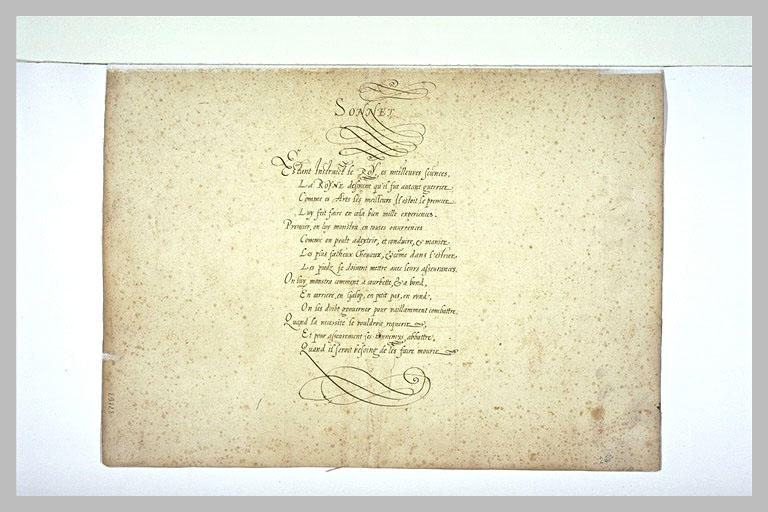 SONNET
Estant Instruict le ROY, es meilleures sciences,
LA ROYNE desirant qu'il fut autant guerrier
Comme es Arts les meilleurs Il estoit le premier
Luy feit faire en cela bien mille experiences.
Premier, on luy monstra en toutes ouurences
Comme on peult adextrir, et conduire, & manier
Les plus fascheux Cheuaux, & côme dans l'estrier
Les piedz se doiuent mettre auec leurs asseurances.
On luy monstra comment a courbette, & a bond,
En carriere, en Galop, en petit pas, en rond,
On les doibt gouuerner pour vaillamment combattre.
Quand la necessite le vouldroit requerir
Et pour asseurement ses ennemys abbattre,
Quand il seroit besoing de les faire mourir